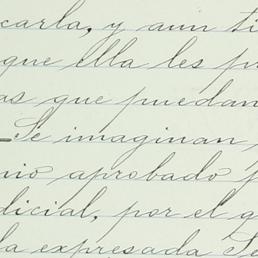 carla, y aun ti
que ella les pu
as que puedan
—Se imaginan
nio aprobado p
dicial, por el q
la expresada Se